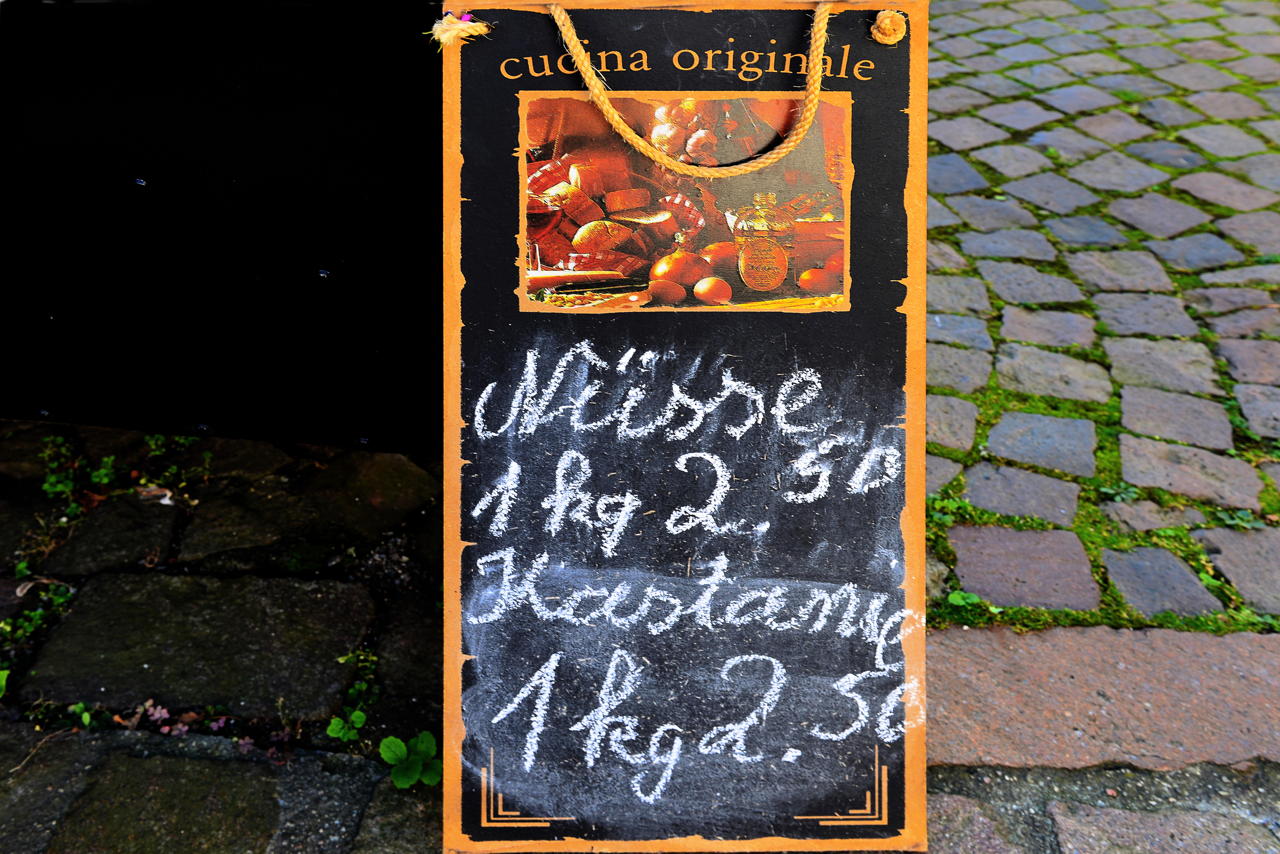 cucina originale
Nüsse
1 kg 2.50
Kastanie
1 kg 2.50